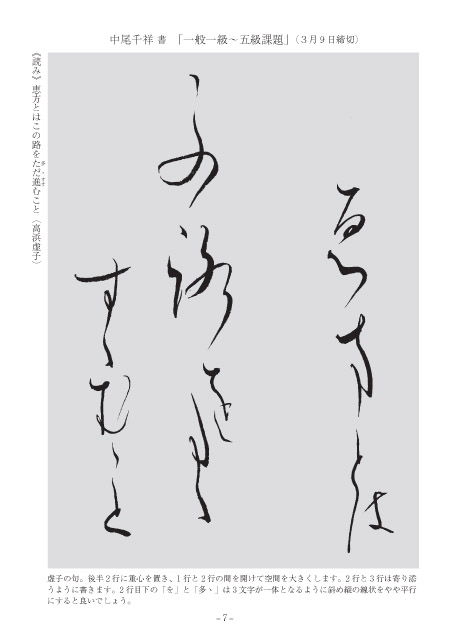 中尾千祥 書 「一般一級～五級課題」（３月９日締切）
《読み》恵方とはこの路をただ進むこと〈高浜虚子〉
ゑ方とは
この路をたゞ
すゝむこと
虚子の句。後半２行に重心を置き、１行と２行の間を開けて空間を大きくします。２行と３行は寄り添
うように書きます。２行目下の「を」と「多ゝ」は３文字が一体となるように斜め縦の線状をやや平行
にすると良いでしょう。
－7－